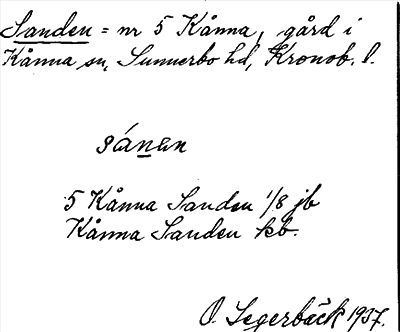 Sanden = nr 5 Kånna, gård i
Kånna sn, Sunnerbo hd, Kronob. l.
sánan
5 Kånna Sanden 1/8 jb
Kånna Sanden kb.
O. Segerbäck 1937.